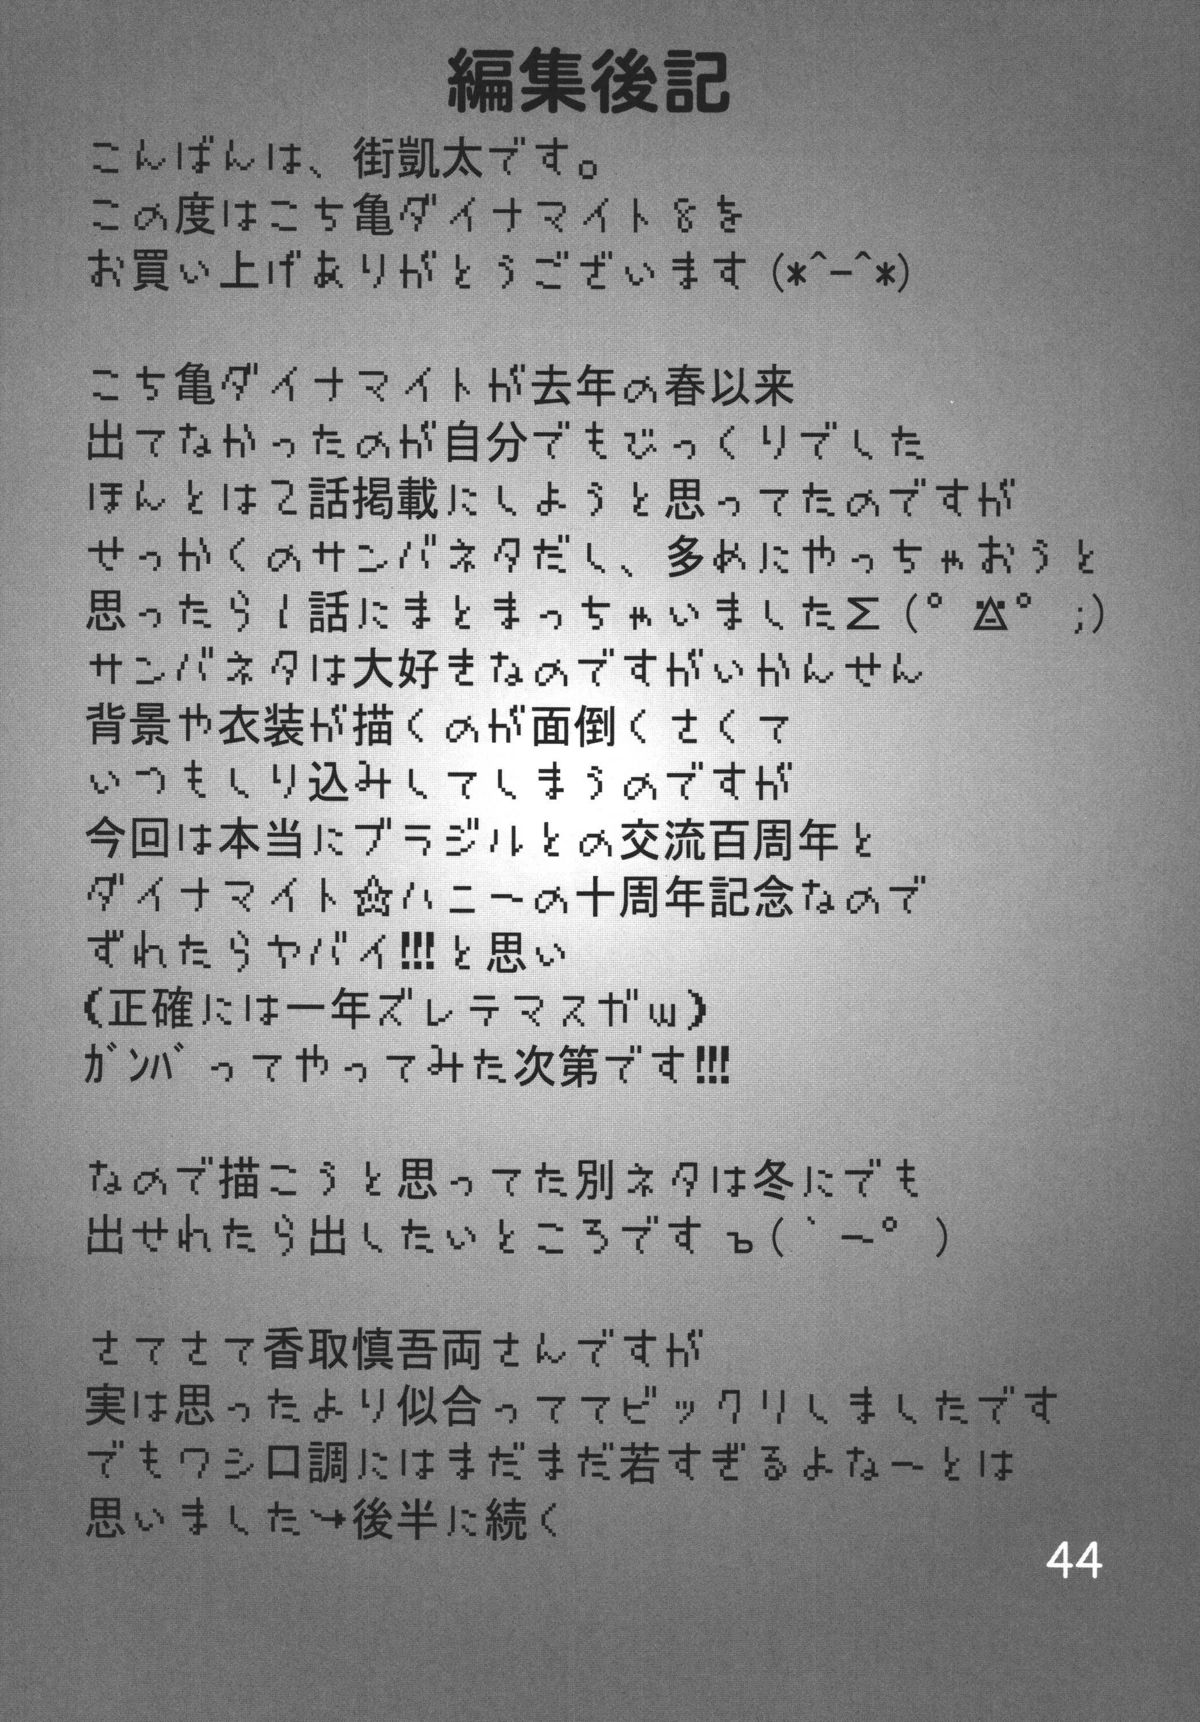 編集後記
こんばんは、街凱太です。
この度はこち亀ダイナマイト8を
お買い上げありがとうございます(*^-^*)
こち亀ダイナマイトが去年の春以来
出てなかったのが自分でもびっくりでした
ほんとは2話掲載にしようと思ってたのですが
せっかくのサンバネタだし、多めにやっちゃおうと
思ったら1話にまとまっちゃいましたΣ(ﾟ◬ﾟ;)
サンバネタは大好きなのですがいかんせん
背景や衣装が描くのが面倒くさくて
いつもしり込みしてしまうのですが
今回は本当にブラジルとの交流百周年と
ダイナマイト☆ハニーの十周年記念なので
ずれたらヤバイ!!!と思い
(正確には一年ズレテマスガw)
ｶﾞﾝﾊﾞってやってみた次第です!!!
なので描こうと思ってた別ネタは冬にでも
出せれたら出したいところですъ(｀ーﾟ)
さてさて香取慎吾両さんですが
実は思ったより似合っててビックリしましたです
でもワシ口調にはまだまだ若すぎるよなーとは
思いました→後半に続く
44